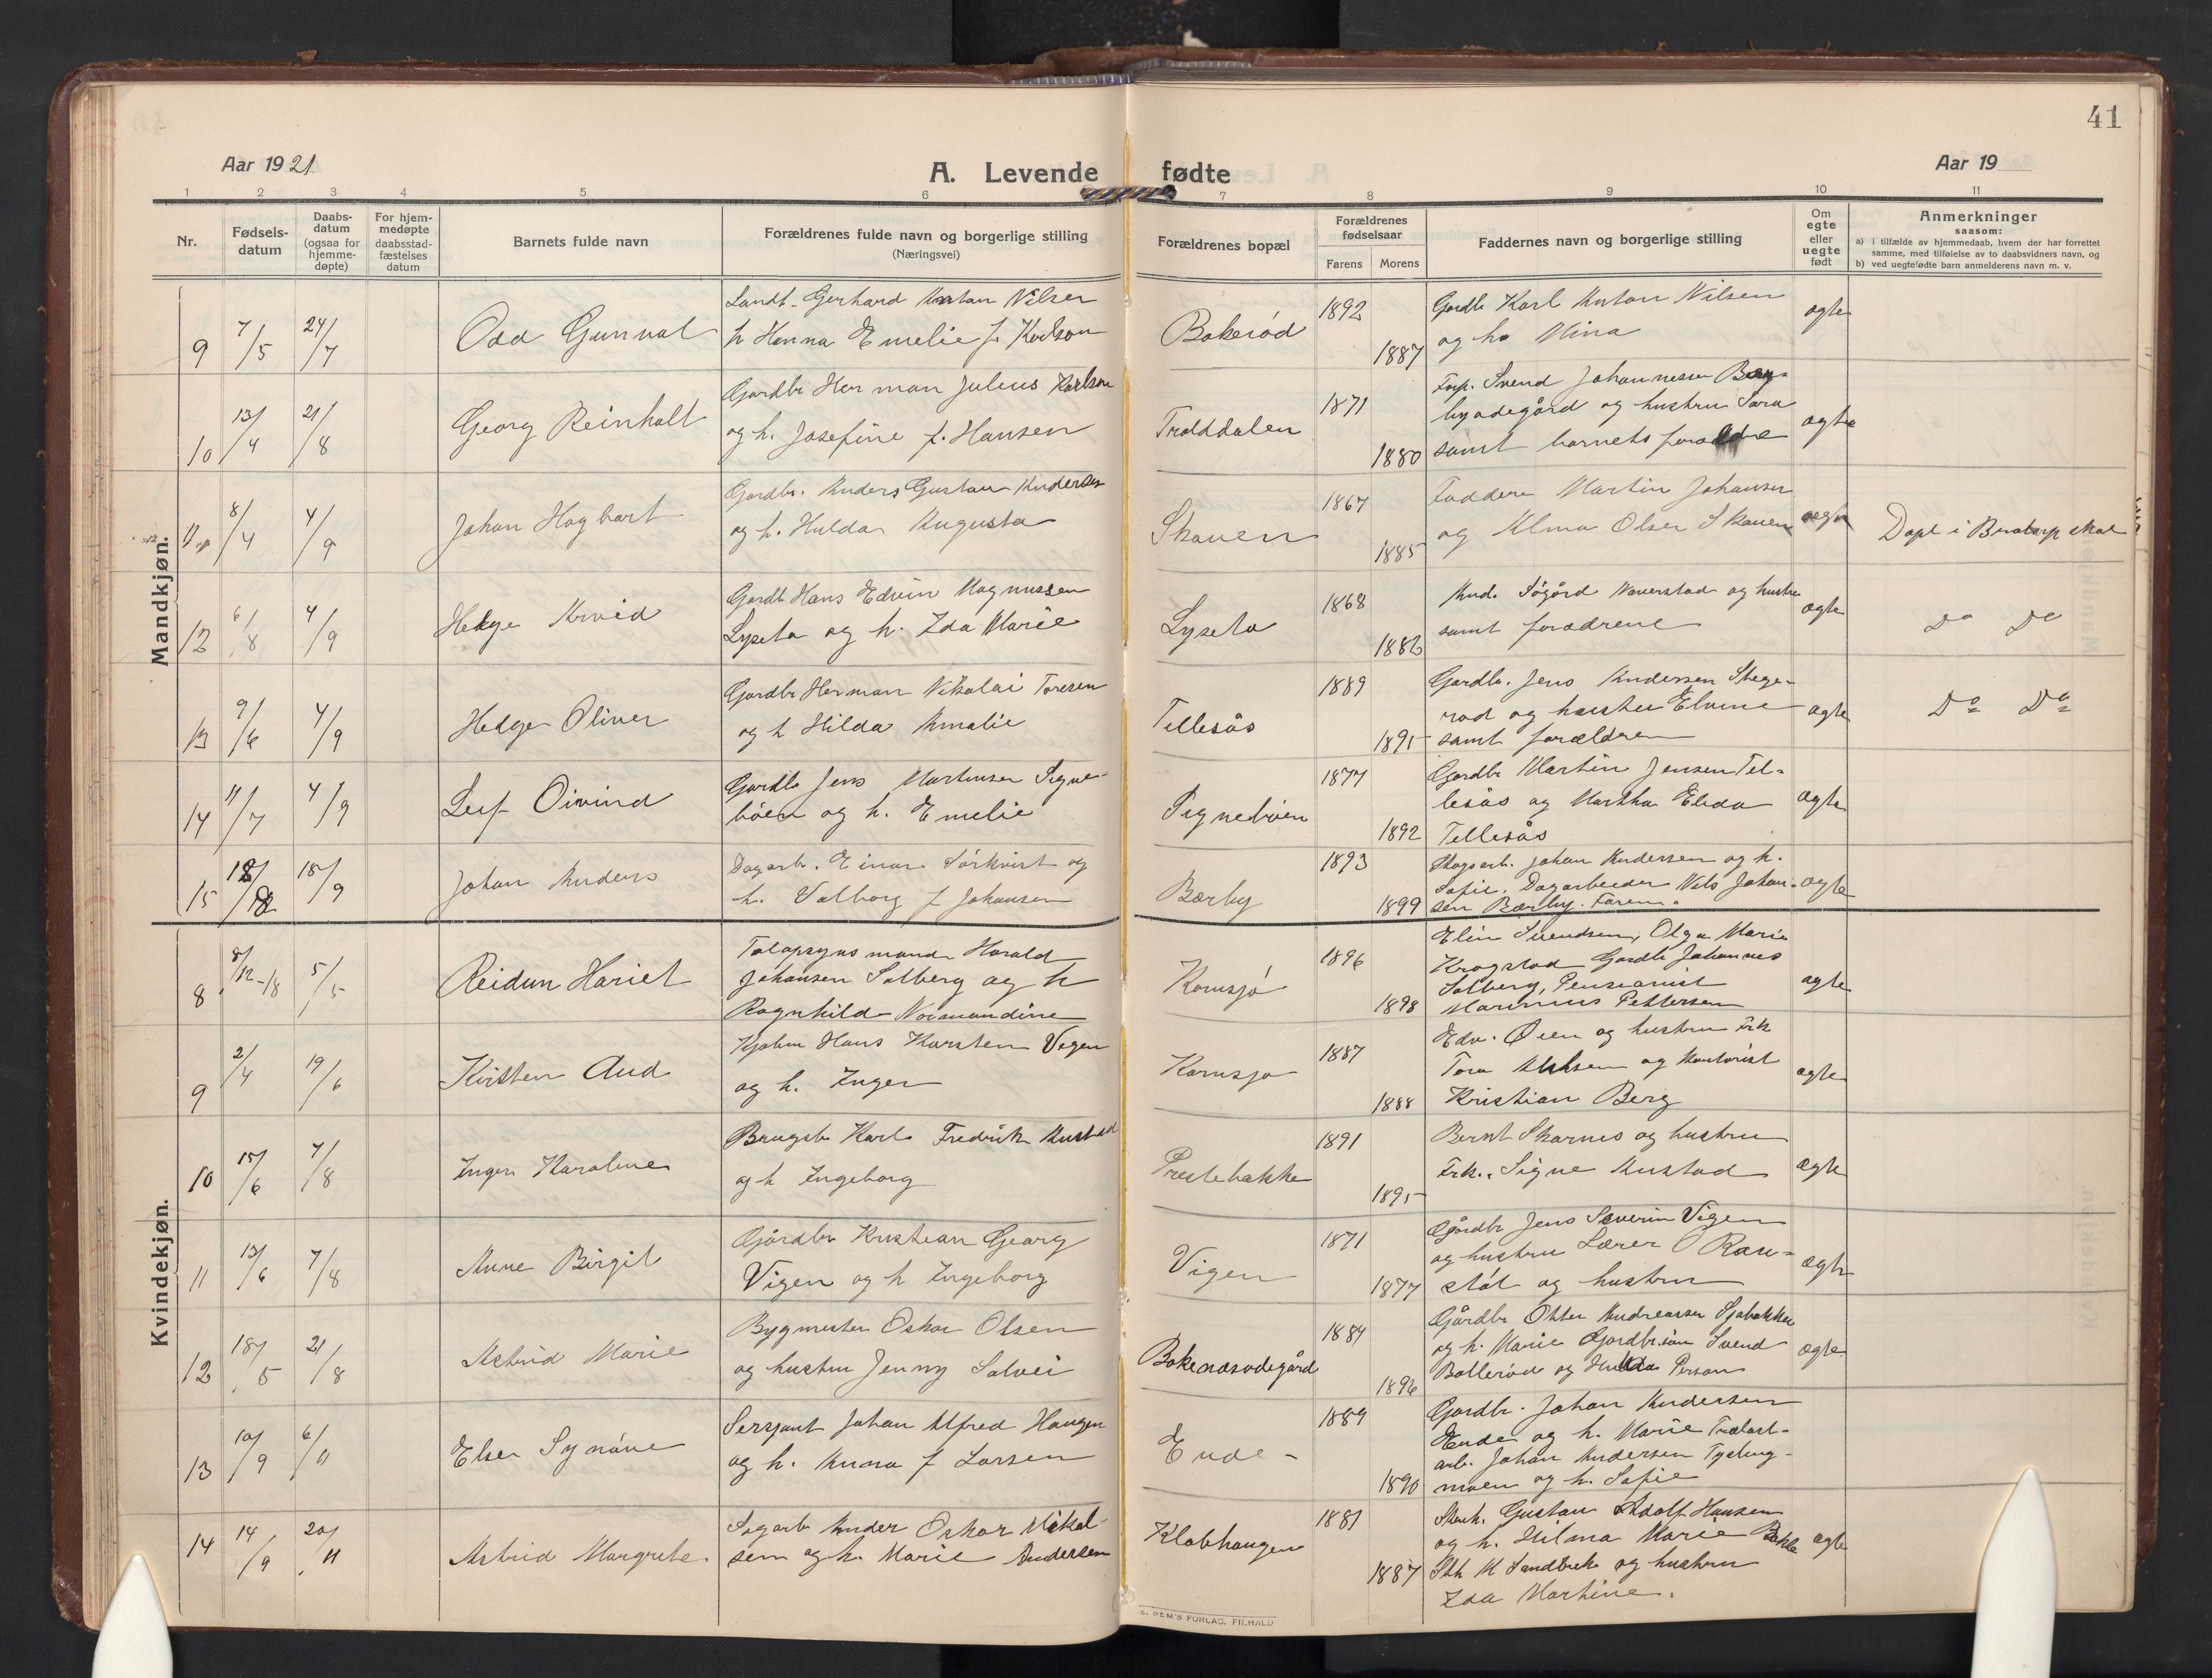 41
Aar 1921
A. Levende fødte
Aar 19
1 2 3 4 5 6 7 8 9 10 11
Nr.
Fødsels-
datum
Daabs-
datum
(ogsaa for
hjemme-
døpte)
For hjem-
medøpte
daabsstad-
fæstelses
datum
Barnets fulde navn
Forældrenes fulde navn og borgerlige stilling
(Næringsvei)
Forældrenes bopæl
Forældrenes
fødselsaar
Farens Morens
Faddernes navn og borgerlige stilling
Om
egte
eller
uegte
født
Anmerkninger
saasom:
a) i tilfælde av hjemmedaab, hvem der har forrettet
samme, med tilføielse av to daabsvidners navn, og
b) ved uegtefødte barn anmelderens navn m. v.
Mandkjøn.
9 7/5 24/7 Odd Gunnvat
Landb. Gerhard Anton Nilsen
h Hanna Emelie f. Karlson
Bakerød 1892 1887
Gardb Karl Anton Nilsen
og h. Mina
agte
10 13/4 21/8 Georg Reinholt
Gardbr Herman Julius Karlson
og h. Josefine f. Hansen
Trolddalen 1871 1880
Svend Johannesen
og hustru Sara
samt barnets forældre
agte
11 8/4 4/9 Johan Hagbart
Gardbr. Anders Gustav Andersen
og h. Hulda Augusta
Skauen 1867 1885
Faddere Martin Johansen
og Alma Olsen Skauen
ægte
Døpt i
12 6/8 4/9 Helge Arvid
Gardb Hans Edvin Magnussen
Lyseto og h. Ida Marie
Lyseto 1868 1882
And. Søgård Naverstad og hustru
samt forædrene
ægte
Do Do
13 9/6 4/9 Helge Oliver
Gardbr Herman Nikolai Toresen
og h Hilda Amalie
Tellesås 1889 1891
Gardb. Jens Andersen Stege-
rød og hustru Elvine
samt forældren
agte
Do Do
14 11/7 4/9 Leif Oivind
Gardb Jens Martinsen Signe-
böen og h. Emelie
Signebøen 1877 1892
Gardbr Martin Jensen Tel-
lesås og Martha Elida
Tellesås
ægte
15 18/9 Johan Anders
Dagarb. Einar Sörkvist og
h. Valborg f Johansen
Børby 1893 1899
Skogsarb. Johan Andersen og h.
Sofie. Dagarbeider Nils Johan-
sen Børby. Faren.
ægte
Kvindekjøn.
8 8/12-18 5/5 Reidun Hariet
Tolopsynsmand Harald
Johansen Solberg og h
Ragnhild Normandine
Kornsjø 1896 1898
Elin Svendsen, Olga Marie
Krogstad Gardb Johannes
Solberg, Pensionist
Marinius Pettersen
agte
9 2/4 19/6 Kirsten Aud
Kjøbm Hans Karsten Vegen
og h. Inger
Kornsjø 1887 1888
Edv. Øien og hustru Frk
Tora og Kontorist
Kristian Berg
agte
10 15/6 7/8 Inger Karoline
Brugsb Karl Fredrik Austad
og h Ingeborg
Prestebakke 1891 1895
Bernt Skarnes og hustru
Frk. Signe Austad
ægte
11 13/6 7/8 Anne Birgit
Gårdbr Kristian Georg
Vigen og h Ingeborg
Vigen 1871 1877
Gårdbr Jens Severin Vigen
og hustru Lærer O Rau-
støl og hustru
ægte
12 18/5 21/8 Astrid Marie
Bygmester Oskar Olsen
og hustru Jenny Solvei
Bokerødsødegård 1884 1896
Gårdbr Otter Andreassen Sjøbakken
og h. Marie Gardbr.søn Svend
Bollerød og Hulda Person
ægte
13 10/9 6/11 Else Synøve
Sersjant Johan Alfred Haugen
og h. Anna f Larsen
Ende- 1889 1890
Gardbr. Johan Andersen
Ende og h. Marie Trælast-
arb. Johan Andersen
moen og h. Sofie
14 14/9 20/11 Astrid Margrete
Sagarb Ander Oskar Mikal-
sen og h. Marie Andersen
Klobhaugen 1881 1887
Gustav Adolf Hansen
og h. Hilma Marie Bakke
M Sandbæk og hustru
Ida Martine.
agte
E. SEM'S FORLAG, FR.HALD